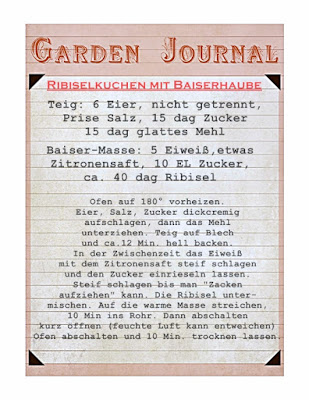 Garden Journal
Ribiselkuchen mit Baiserhaube
Teig: 6 Eier, nicht getrennt,
Prise Salz, 15 dag Zucker
15 dag glattes Mehl
Baiser-Masse: 5 Eiweiß,etwas
Zitronensaft, 10 EL Zucker,
ca. 40 dag Ribisel
Ofen auf 180° vorheizen.
Eier, Salz, Zucker dickcremig
aufschlagen, dann das Mehl
unterziehen. Teig auf Blech
und ca.12 Min. hell backen.
In der Zwischenzeit das Eiweiß
mit dem Zitronensaft steif schlagen
und den Zucker einrieseln lassen.
Steif schlagen bis man "Zacken
aufziehen" kann. Die Ribisel unter-
mischen. Auf die warme Masse streichen.
10 Min ins Rohr. Dann abschalten
kurz öffnen (feuchte Luft kann entweichen)
Ofen abschalten und 10 Min. trocknen lassen.